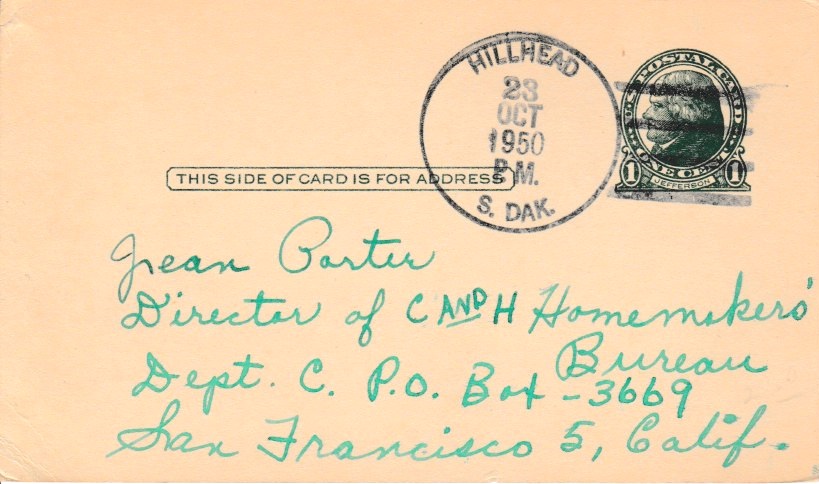 HILLHEAD
23
OCT
1950
P.M.
S. DAK.
U.S. POSTAL CARD
ONE CENT
1 JEFFERSON 1
THIS SIDE OF CARD IS FOR ADDRESS
Jean Porter
Director of C AND H Homemakers'
Bureau
Dept. C. P.O. Box - 3669
San Francisco 5, Calif.